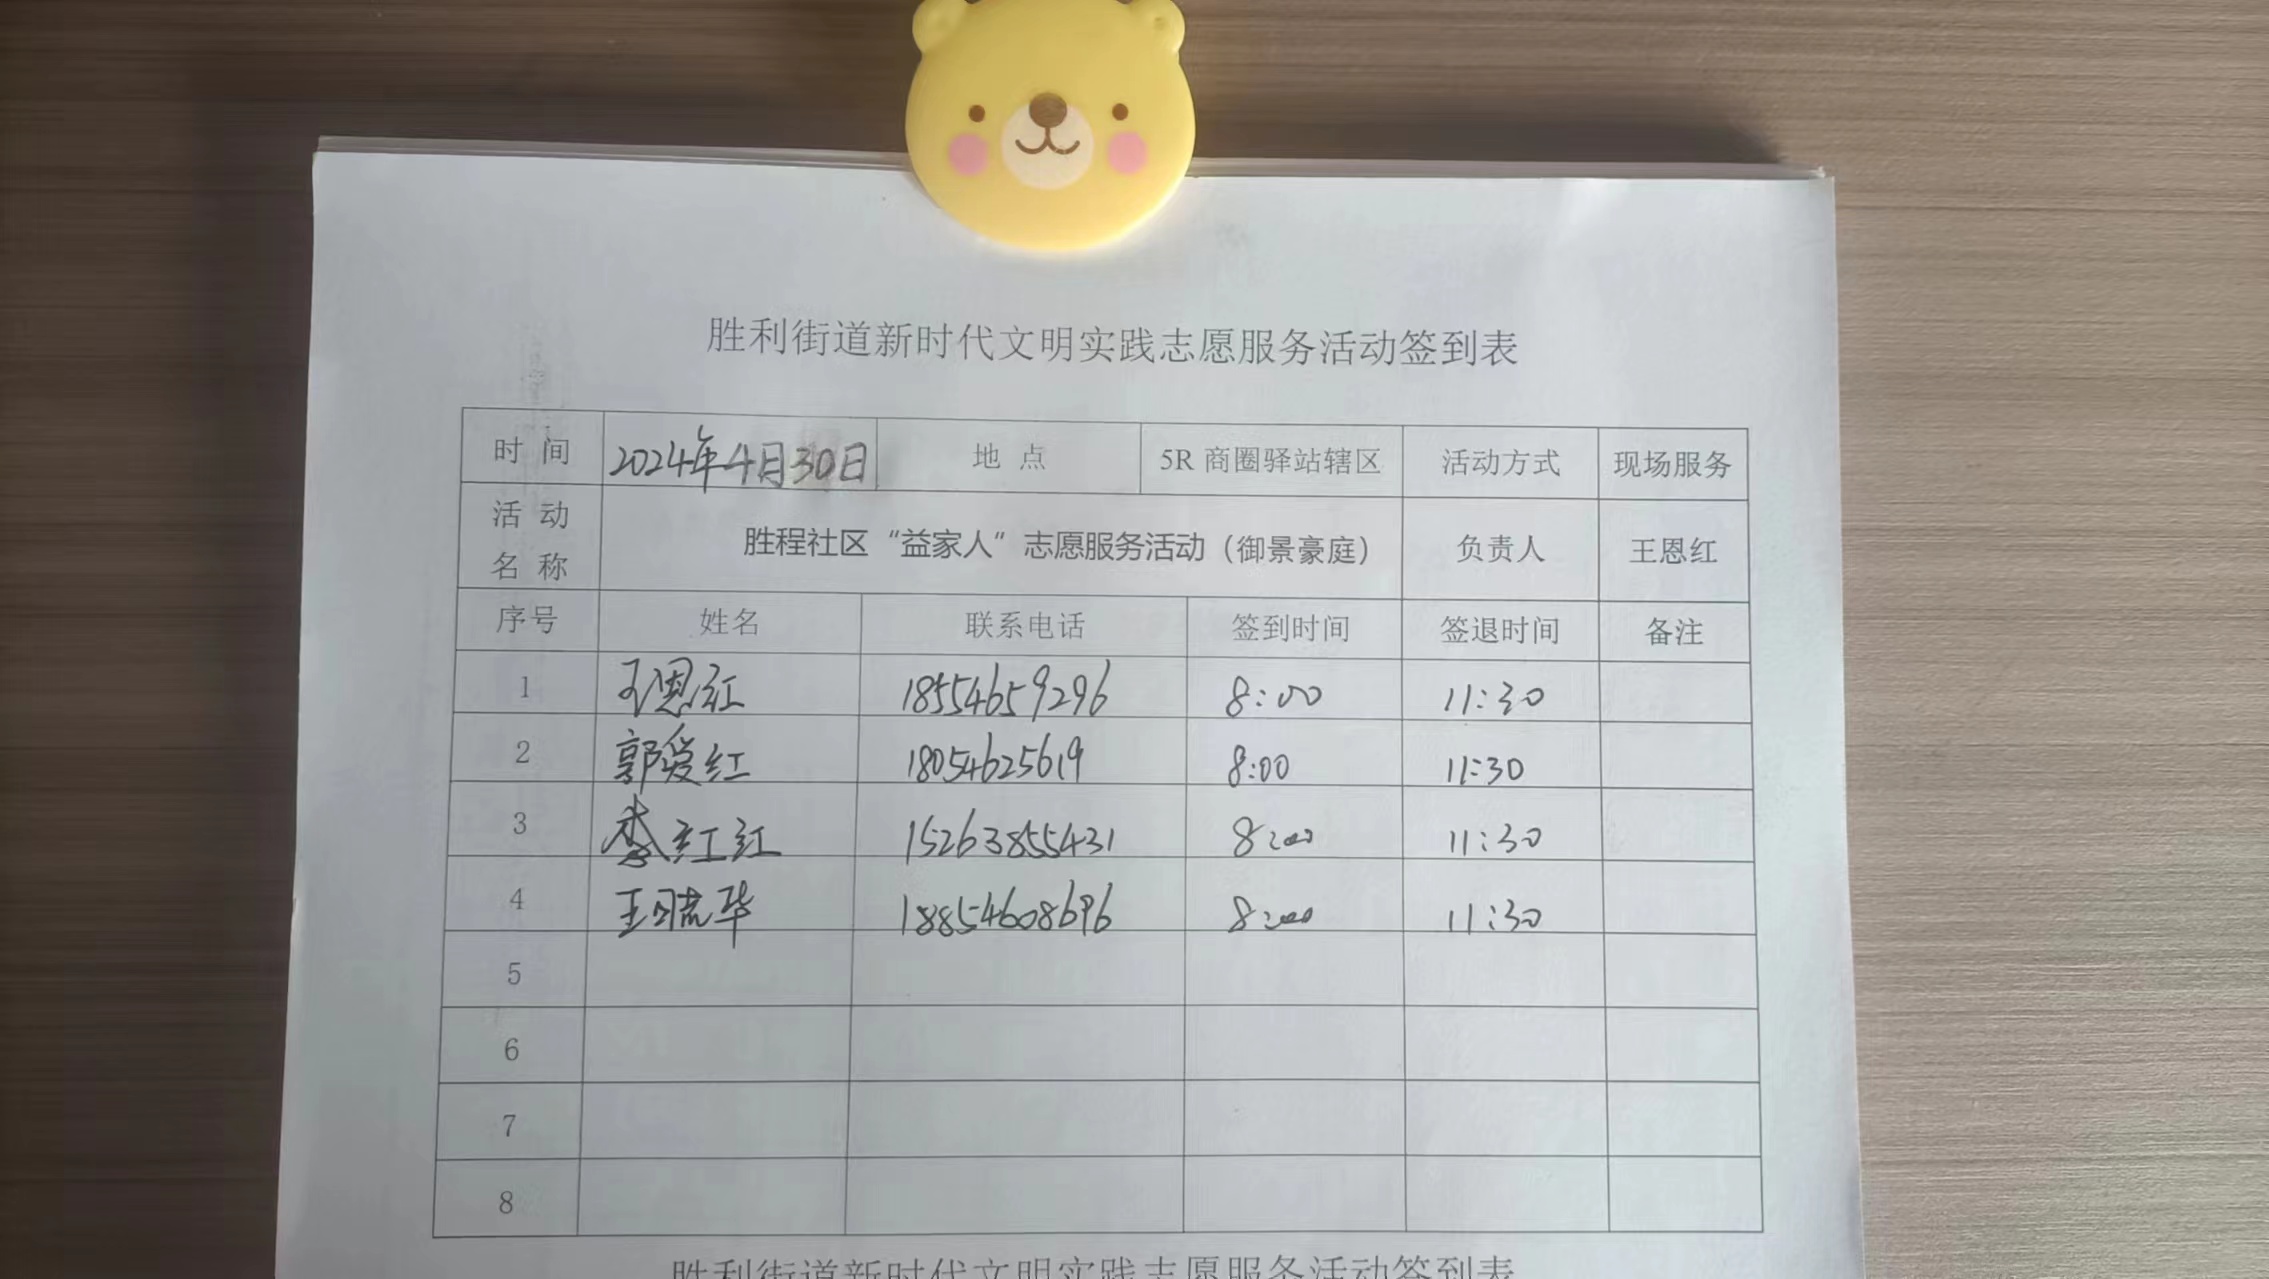 胜利街道新时代文明实践志愿服务活动签到表
时 间 2024年4月30日 地 点 5R 商圈驿站辖区 活动方式 现场服务
活 动 名 称 胜程社区“益家人”志愿服务活动（御景豪庭） 负责人 王恩红
序号 姓名 联系电话 签到时间 签退时间 备注
1 王恩红 18554659296 8:00 11:30
2 郭爱红 18054625619 8:00 11:30
3 李红红 15263855431 8:00 11:30
4 王晓华 18854608696 8:00 11:30
5
6
7
8
胜利街道新时代文明实践志愿服务活动签到表